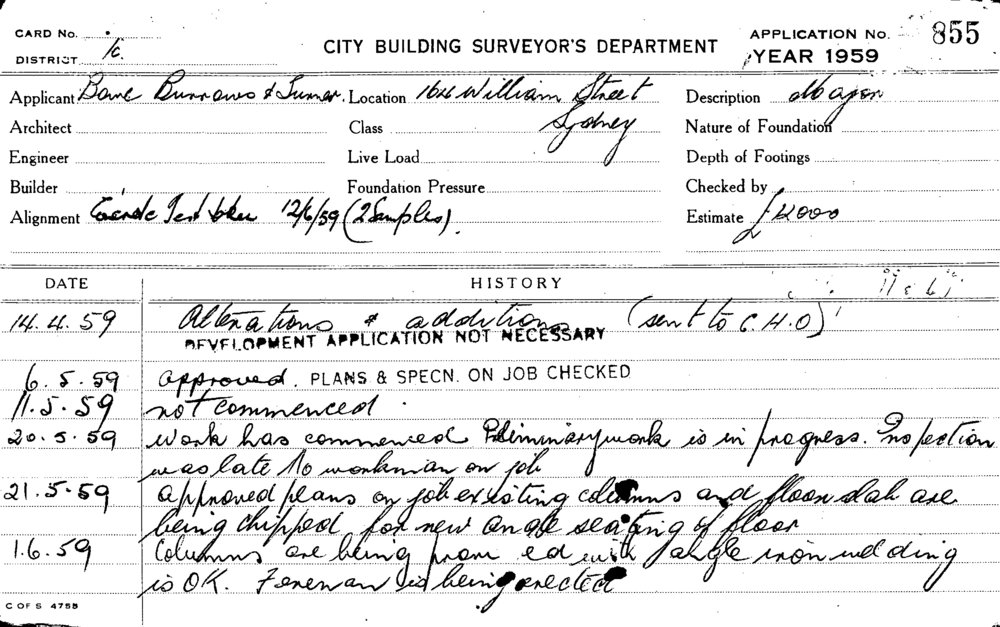 CARD No.
DISTRICT
CITY BUILDING SURVEYOR'S DEPARTMENT
APPLICATION No. 855
YEAR 1959
Applicant Burrows & Turner. Location 164 William Street
Sydney
Description Major
Architect
Class
Nature of Foundation
Engineer
Live Load
Depth of Footings
Builder
Foundation Pressure
Checked by
Alignment Test 12/6/59 (2 Samples).
Estimate £4000
DATE HISTORY
14.4.59 Alterations & additions (sent to C.H.O)
DEVELOPMENT APPLICATION NOT NECESSARY
6.5.59 approved. PLANS & SPECN. ON JOB CHECKED
11.5.59 not commenced.
20.5.59 work has commenced Preliminary work is in progress. Inspection
was late No workman on job
21.5.59 approved plans on job existing columns and floor slab are
being chipped for new angle seating of floor
1.6.59 Columns are being ed with angle iron welding
is OK. is being erected
C OF S 475B